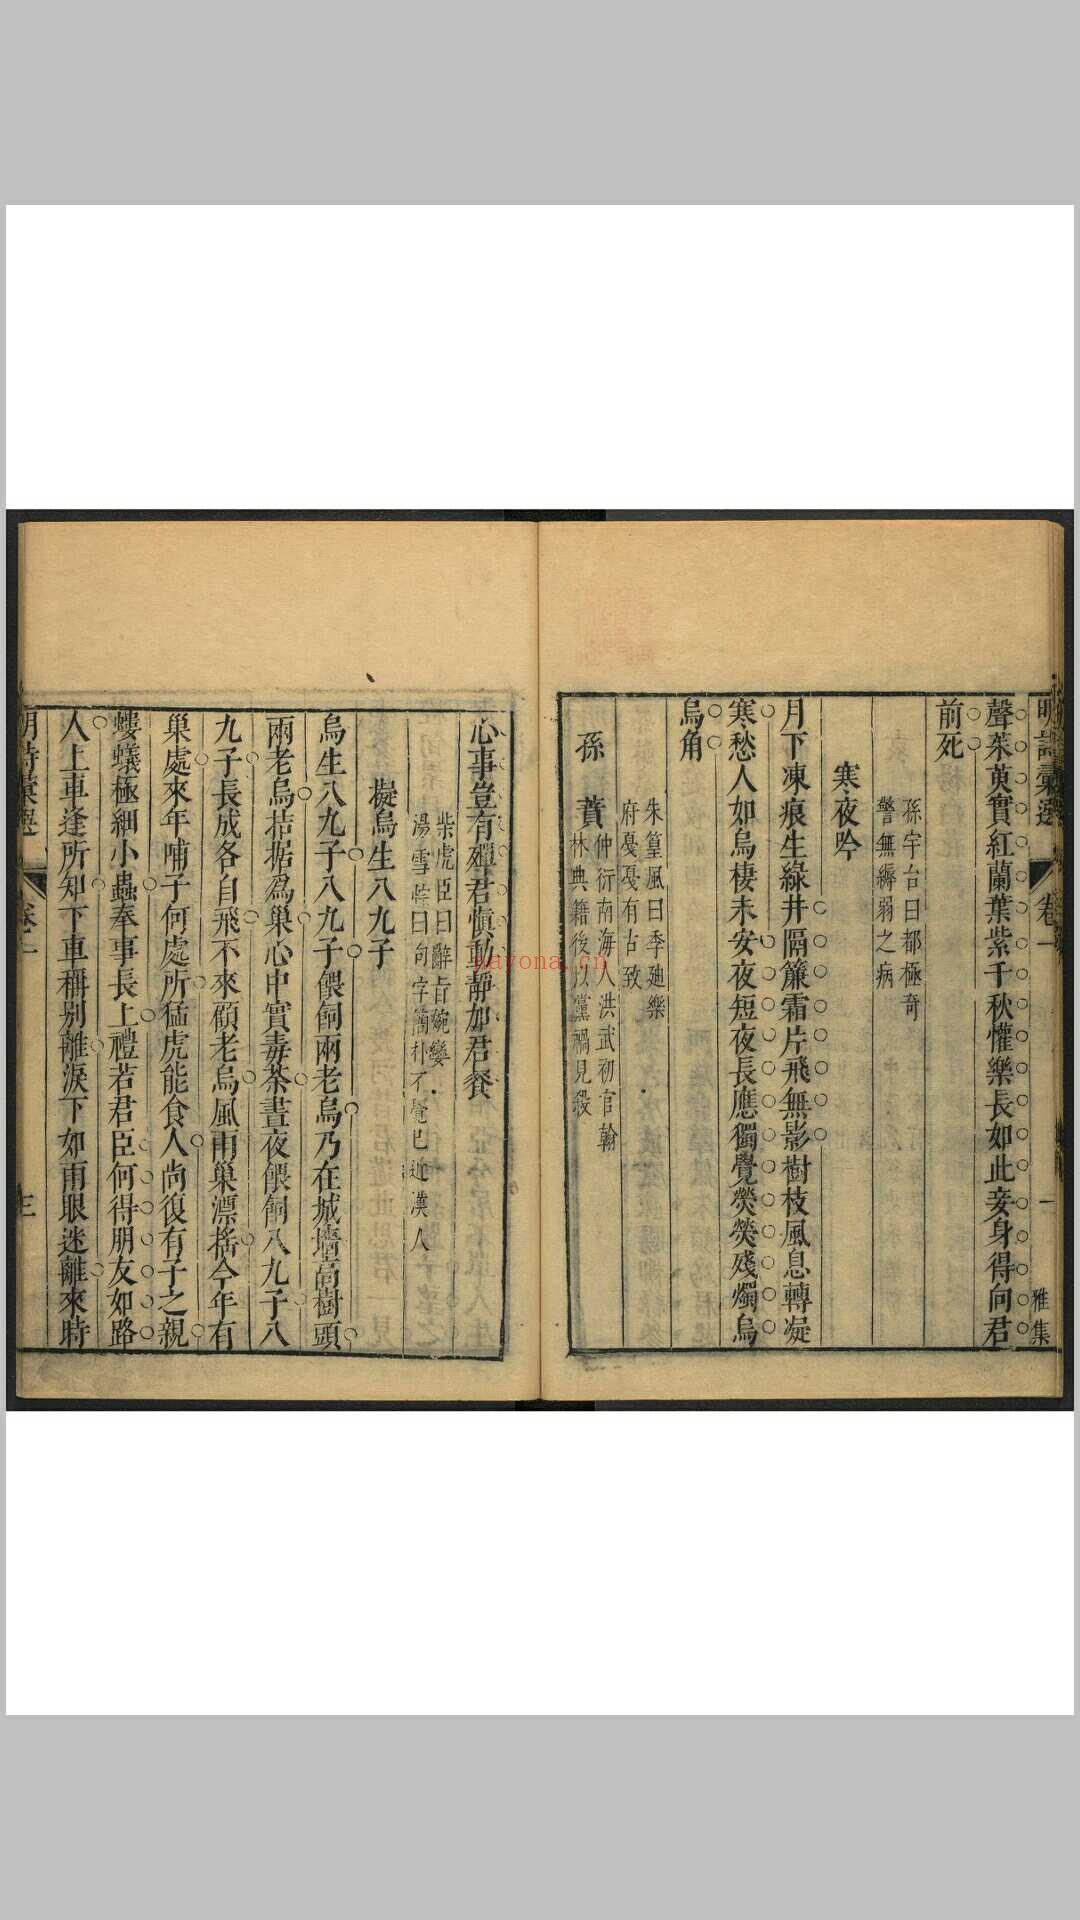 明詩彙選 卷一 二 雅集
聲茱萸實紅蘭葉紫千秋懽樂長如此妾身得向君
前死
孫宇台曰都極奇
警無縟弱之病
寒夜吟
月下凍痕生綠井隔簾霜片飛無影樹枝風息轉凝
寒愁人如烏棲未安夜短夜長應獨覺熒熒殘燭烏
烏角
朱篁風曰季廸樂
府戞戞有古致
孫蕡
仲衍南海人洪武初官翰
林典籍後以黨禍見殺
心事豈有殫君慎動靜加君餐
柴虎臣曰辭旨婉孌
湯雪㟙曰句字簡朴不覺已近漢人
擬烏生八九子
烏生八九子八九子餵飼兩老烏乃在城墻高樹頭
兩老烏拮据爲巢心中實毒荼晝夜餵飼八九子八
九子長成各自飛不來顧老烏風雨巢漂搖今年有
巢處來年哺子何處所猛虎能食人尚復有子之親
螻蟻極細小蟲奉事長上禮若君臣何得朋友如路
人上車逢所知下車稱别離淚下如雨眼迷離來時
明詩彙選 卷一 三
nayona.cn